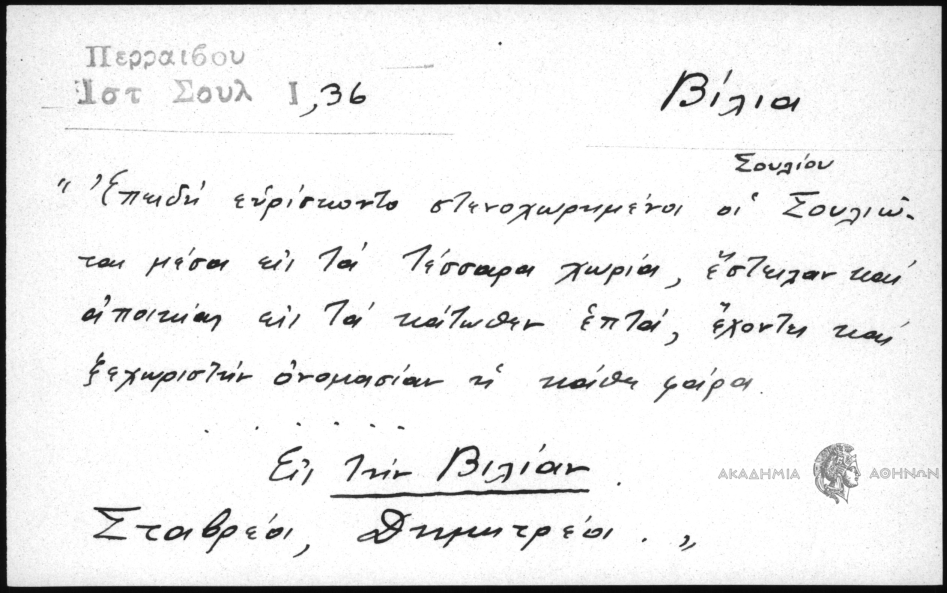 Περραιβου
Ιστ Σουλ Ι,36
Βίλια
Σουλίου
"Ἐπειδή εὑρίσκοντο στενοχωρημένοι οἱ Σουλιῶ-
ται μέσα εἰς τά τέσσαρα χωρία, ἔστειλαν καί
ἀποικίας εἰς τά κάτωθεν ἑπτά, ἔχοντες καί
ξεχωριστήν ὀνομασίαν ἡ κάθε φάρα.
. . . . . .
Εἰς τήν Βιλίαν.
ΑΚΑΔΗΜΙΑ ΑΘΗΝΩΝ
Σταβρέοι, Δημητρέοι. "